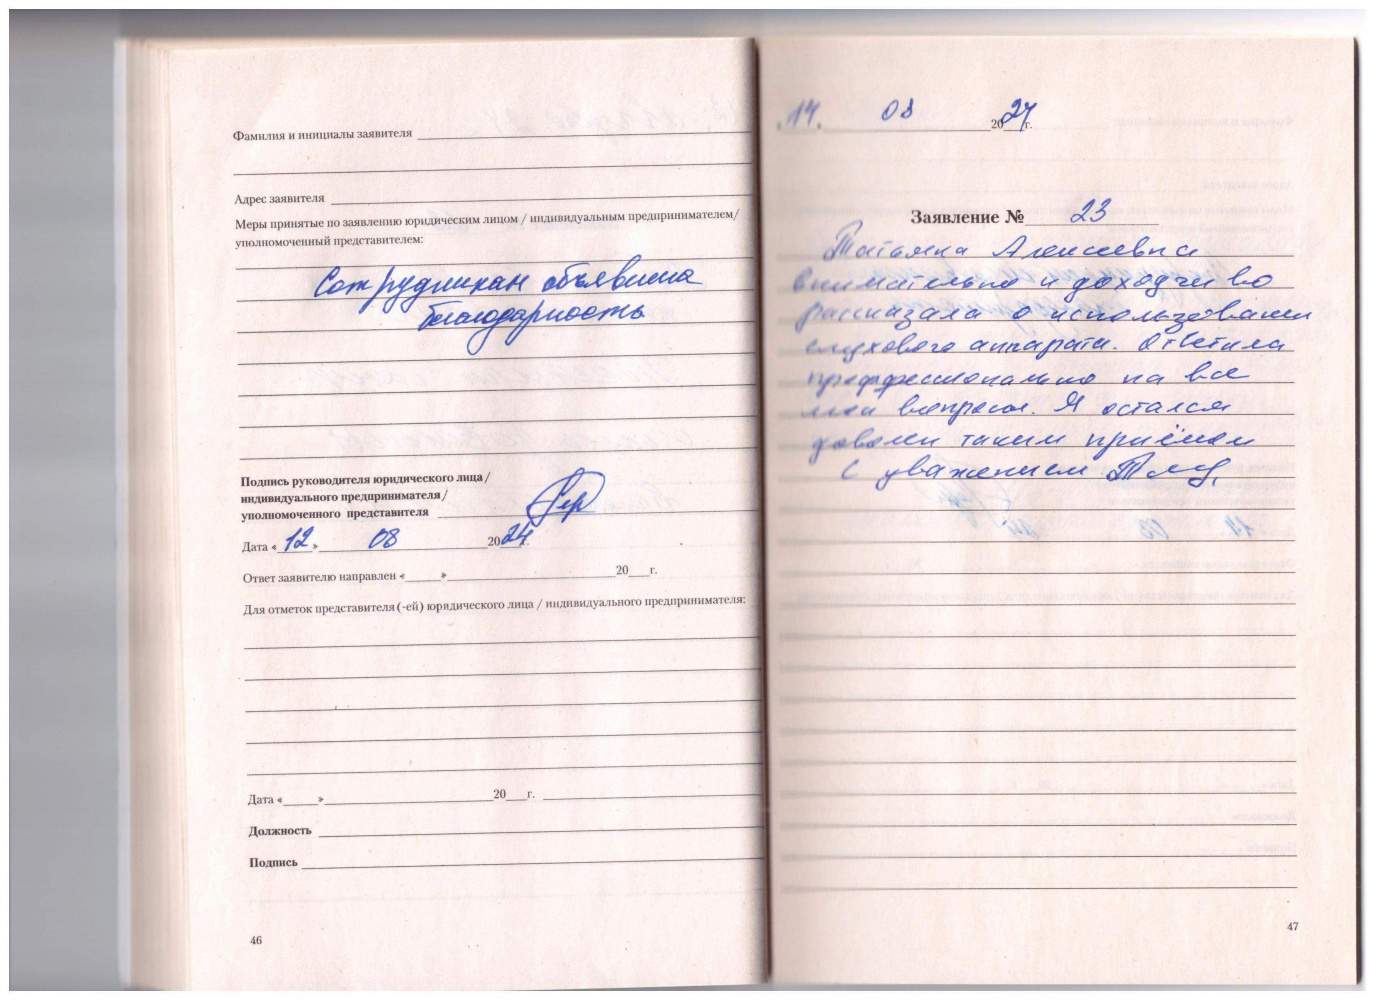 Фамилия и инициалы заявителя
Адрес заявителя
Меры принятые по заявлению юридическим лицом / индивидуальным предпринимателем/
уполномоченный представителем:
Сотрудникам объявлена
благодарность
Подпись руководителя юридического лица/
индивидуального предпринимателя/
уполномоченного представителя
Дата «12» 08 2024г.
Ответ заявителю направлен «___»___20___г.
Для отметок представителя (-ей) юридического лица / индивидуального предпринимателя:
Дата «___»___20___г.
Должность
Подпись
46
14. 08 2024г.
Заявление № 23
Татьяна Алексеевна
внимательно и доходчиво
рассказала о использовании
слухового аппарата. Ответила
профессионально на все
мои вопросы. Я остался
доволен таким приёмом
С уважением
47